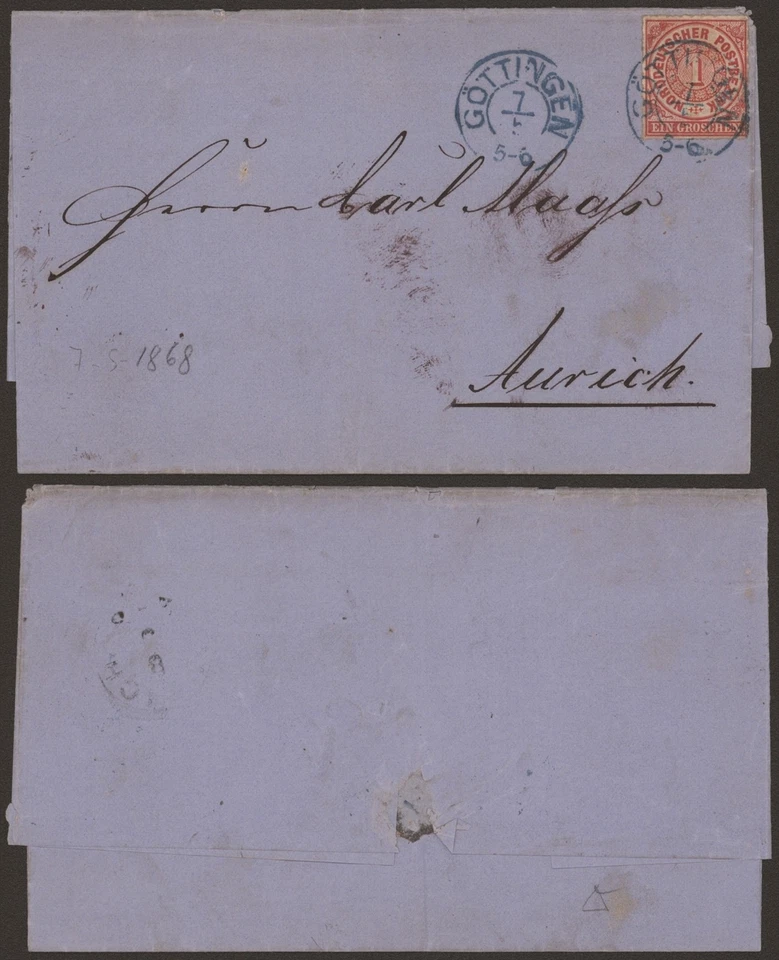 GÖTTINGEN
7
5
5-6
NORDDEUTSCHER POSTBEZIRK
1
EIN GROSCHEN
GÖTTINGEN
7
5-6
Herrn Carl Maaß
Aurich.
7-5-1868